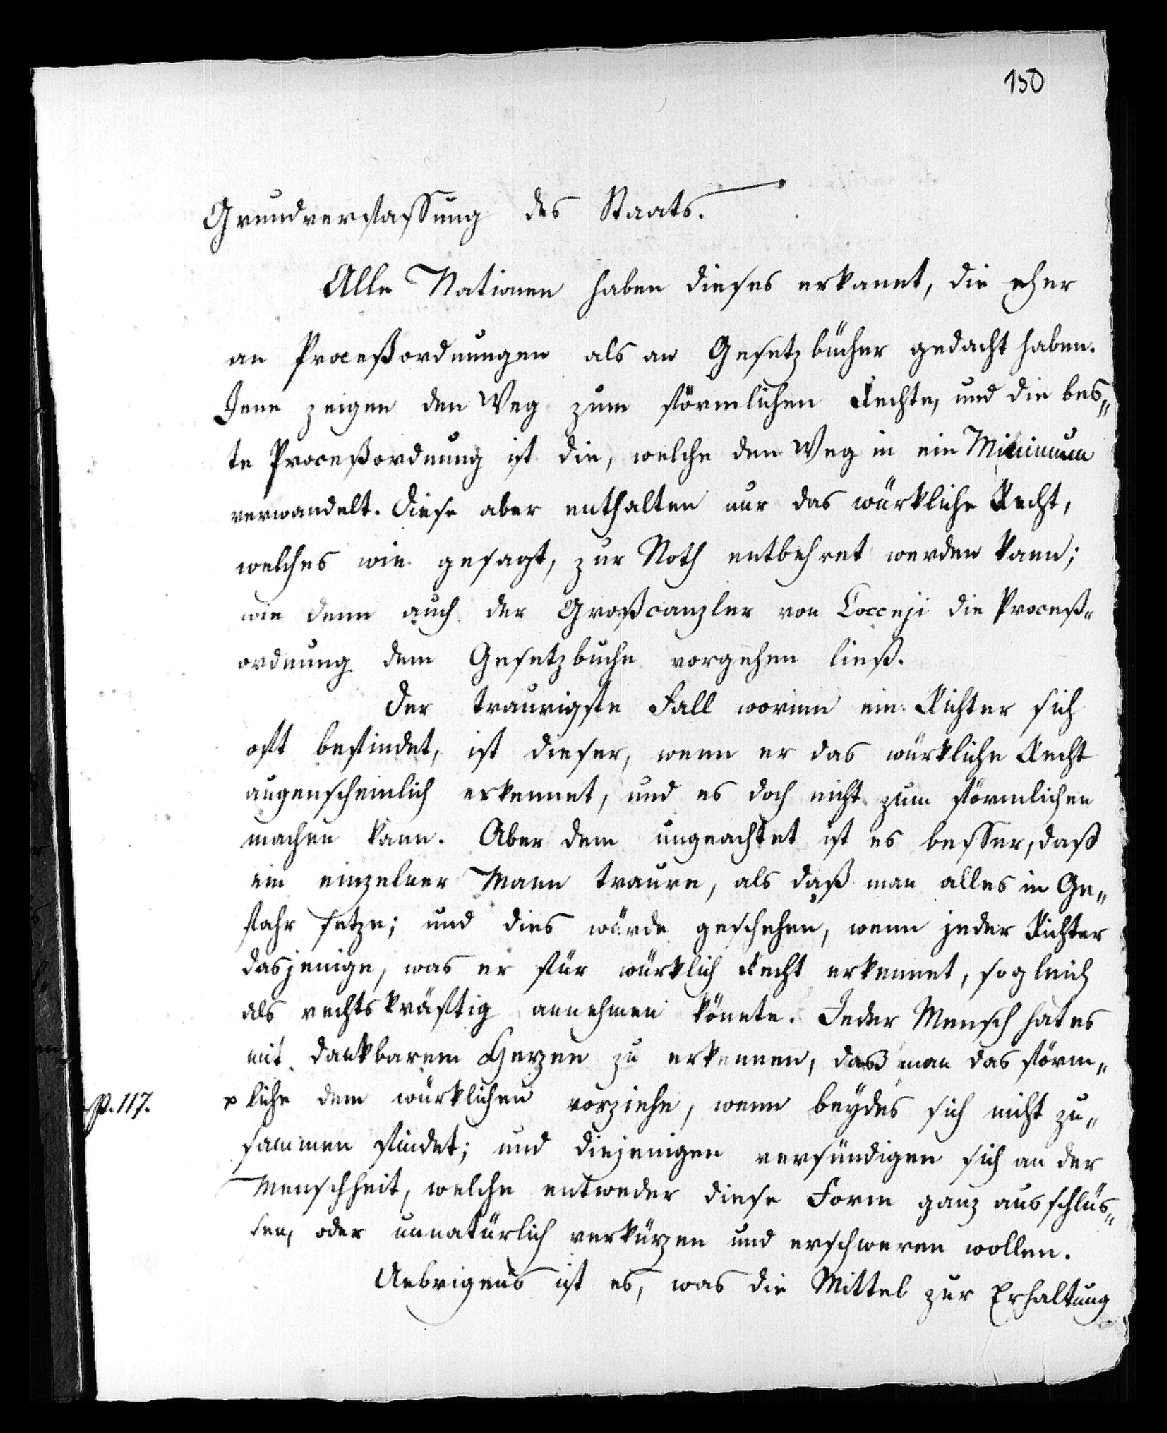 150
Grundverfassung des Staats.
Alle Nationen haben dieses erkannt, die eher
an Proceßordnungen als an Gesetzbücher gedacht haben.
Jene zeigen den Weg zum förmlichen Rechte, und die bes„
te Proceßordnung ist die, welche den Weg in ein Minimum
verwandelt. Diese aber enthalten nur das würkliche Recht,
welches wie gesagt, zur Noth entbehret werden kann;
wie denn auch der Großcanzler von Cocceji die Proceß„
ordnung dem Gesetzbuche vorgehen ließ.
Der traurigste Fall worinn ein Richter sich
oft befindet, ist dieser, wenn er das würkliche Recht
augenscheinlich erkennet, und es doch nicht zum förmlichen
machen kann. Aber dem ungeachtet ist es besser, daß
ein einzelner Mann traure, als daß man alles in Ge„
fahr setze; und dies würde geschehen, wenn jeder Richter
dasjenige, was er für würklich Recht erkennet, sogleich
als rechtskräftig annehmen könnte. Jeder Mensch hat es
mit dankbarem Herzen zu erkennen, dass man das förm„
p. 117. x liche dem würklichen vorziehe, wenn beydes sich nicht zu„
sammen findet; und diejenigen versündigen sich an der
Menschheit, welche entweder diese Form ganz ausschlüs„
sen, oder unnatürlich verkürzen und erschweren wollen.
Uebrigens ist es, was die Mittel zur Erhaltung